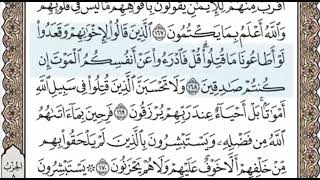 أَقۡرَبُ مِنۡهُمۡ لِلۡإِيمَٰنِۚ يَقُولُونَ بِأَفۡوَٰهِهِم مَّا لَيۡسَ فِي قُلُوبِهِمۡۚ
وَٱللَّهُ أَعۡلَمُ بِمَا يَكۡتُمُونَ ١٦٧ ٱلَّذِينَ قَالُواْ لِإِخۡوَٰنِهِمۡ وَقَعَدُواْ
لَوۡ أَطَاعُونَا مَا قُتِلُواْۗ قُلۡ فَٱدۡرَءُواْ عَنۡ أَنفُسِكُمُ ٱلۡمَوۡتَ إِن
كُنتُمۡ صَٰدِقِينَ ١٦٨ وَلَا تَحۡسَبَنَّ ٱلَّذِينَ قُتِلُواْ فِي سَبِيلِ ٱللَّهِ
أَمۡوَٰتَۢاۚ بَلۡ أَحۡيَآءٌ عِندَ رَبِّهِمۡ يُرۡزَقُونَ ١٦٩ فَرِحِينَ بِمَآ ءَاتَىٰهُمُ
ٱللَّهُ مِن فَضۡلِهِۦ وَيَسۡتَبۡشِرُونَ بِٱلَّذِينَ لَمۡ يَلۡحَقُواْ بِهِم
مِّنۡ خَلۡفِهِمۡ أَلَّا خَوۡفٌ عَلَيۡهِمۡ وَلَا هُمۡ يَحۡزَنُونَ ١٧٠ ۞ يَسۡتَبۡشِرُونَ
الحزب